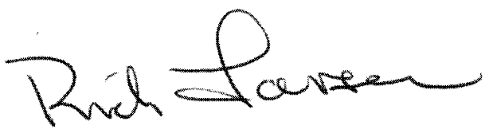 Rich Larsen